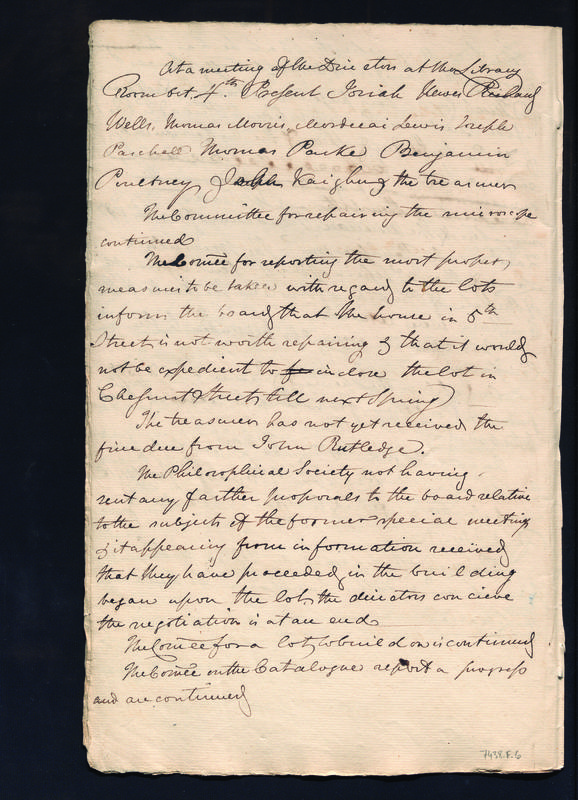 At a meeting of the Directors at the Library
Room Oct. 4th. Present Josiah Hewes Richard
Wells, Thomas Morris, Mordecai Lewis Joseph
Paschall Thomas Parke Benjamin
Poultney, Joseph Kaighn & the treasurer
The Committee for repairing the microscope
continued
The Comee for reporting the most proper
measures to be taken with regard to the lots
inform the board that the house in 5th
Street is not worth repairing & that it would
not be expedient to inclose the lot in
Chesnut Street till next Spring
The treasurer has not yet received the
fine due from John Rutledge.
The Philosophical Society not having
sent any farther proposals to the board relative
to the subjects of the former special meeting
& it appearing from information received
that they have proceeded in the building
began upon the lot, the directors concieve
the negotiation is at an end
The Comee for a lot to build on is continued
The Comee on the Catalogue report a progress
and are continued
7438.F.6